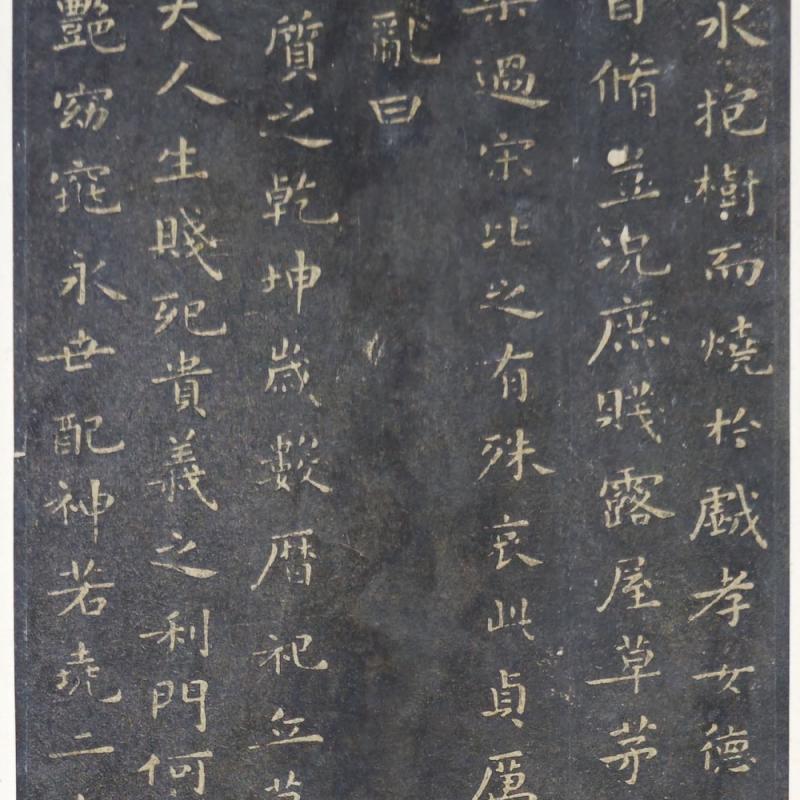 水抱樹而燒於戲孝女德
脩並况庶賤露屋草茅
過宋比之有殊哀此貞厲
亂曰
質之乾坤歲數曆祀立
夫人生賤死貴義之利門何
艷窈窕永世配神若堯二